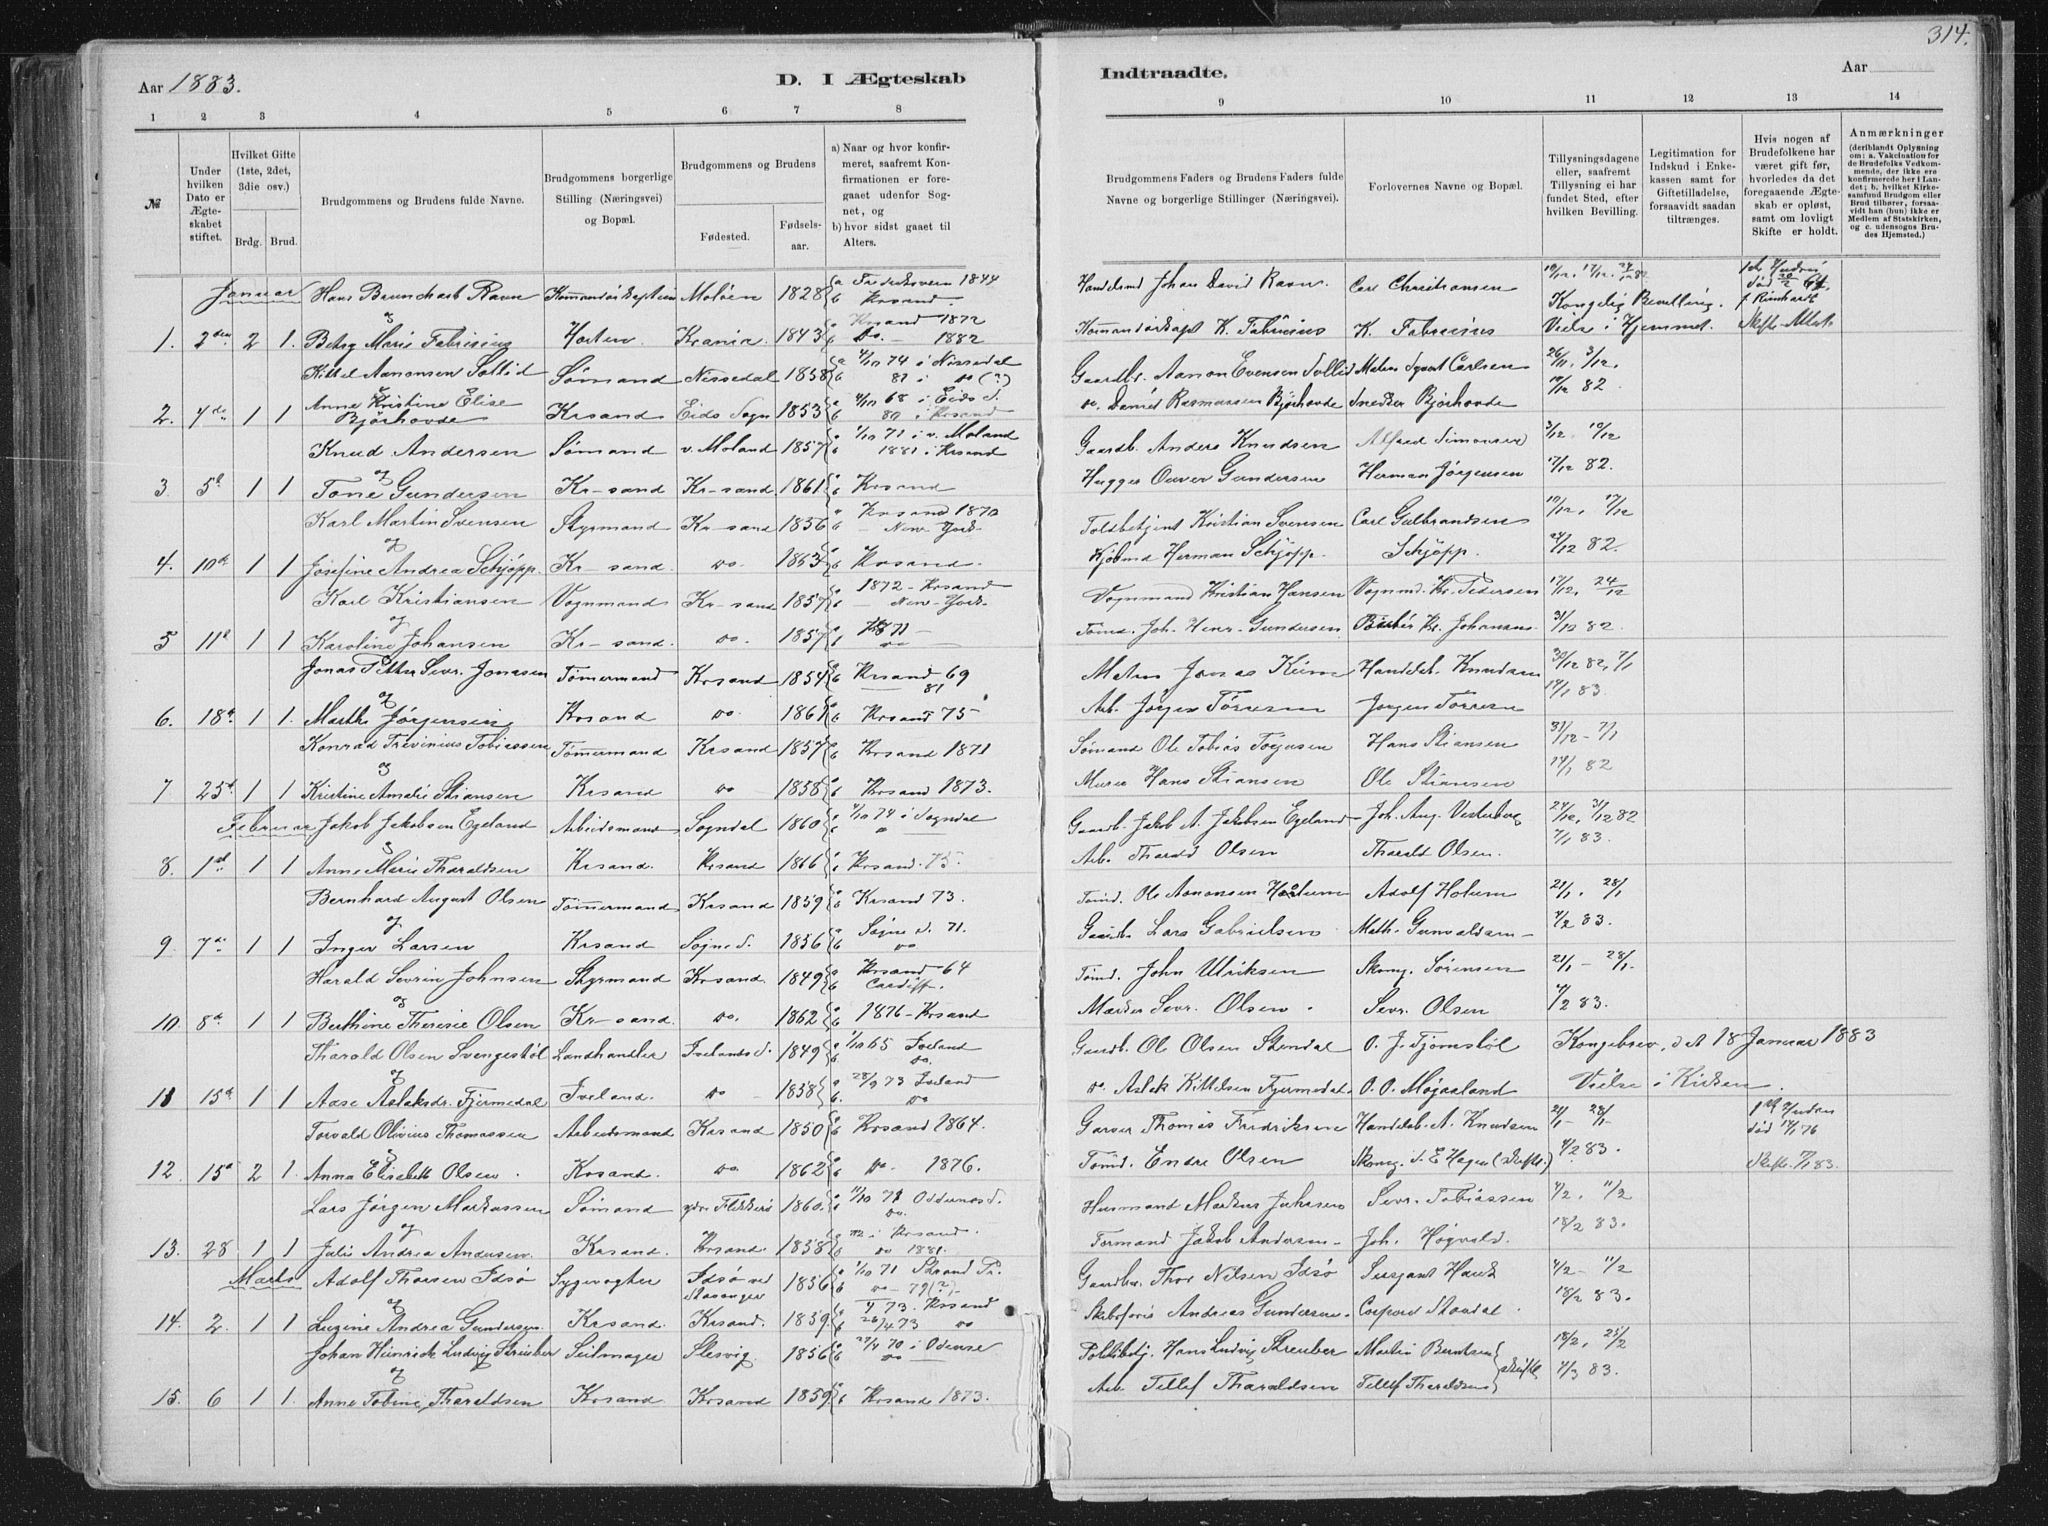 314.
Aar 1883.
D. I Ægteskab
Indtraadte.
Aar
1 2 3 4 5 6 7 8
9 10 11 12 13 14
№
Under hvilken Dato er Ægteskabet stiftet.
Hvilket Gifte (1ste, 2det, 3die osv.)
Brdg. Brud.
Brudgommens og Brudens fulde Navne.
Brudgommens borgerlige Stilling (Næringsvei) og Bopæl.
Brudgommens og Brudens
Fødested.
Fødselsaar.
a) Naar og hvor konfirmeret, saafremt Konfirmationen er foregaaet udenfor Sognet, og
b) hvor sidst gaaet til Alters.
Brudgommens Faders og Brudens Faders fulde Navne og borgerlige Stillinger (Næringsvei).
Forlovernes Navne og Bopæl.
Tillysningsdagene eller, saafremt Tillysning ei har fundet Sted, efter hvilken Bevilling.
Legitimation for Indskud i Enkekassen samt for Giftetilladelse, forsaavidt saadan tiltrænges.
Hvis nogen af Brudefolkene har været gift før, hvorledes da det foregaaende Ægteskab er opløst, samt om lovligt Skifte er holdt.
Anmærkninger (deriblandt Oplysning om: a. Vakcination for de Brudefolks Vedkommende, der ikke ere konfirmerede her i Landet; b. hvilket Kirkesamfund Brudgom eller Brud tilhører, forsaavidt han (hun) ikke er Medlem af Statskirken, og c. udensogns Brudes Hjemsted.)
Januar Hans Ravn Moløen 1828 a Fredriksvern 1844 b Krsand Handelsmd Johan David Ravn. Carl Christiansen 10/12, 17/12, 24/12 82 Kongelig Bevilling.
og
1. 2den 2 1. Betzy Marie Fabricius Horten Krania. 1843 a Krsand 1872 b Do. 1882 K. Fabricius K. Fabricius Vielse i Hjemmet. Skifte-Attest
Kittel Aanonsen Sollid Sømand Nissedal 1858 a 1/10 74 i Nissedal b 81 i do (?) Gaardb. Aanon Evensen Sollid Carlsen 26/11, 3/12,
og
2. 4de 1 1 Anne Kristine Elise Bjørhovde Krsand Eids Sogn 1853 a 1/10 68 i Eids S. b 80 i Krsand do. Daniel Rasmussen Bjørhovde Snedker Bjørhovde 10/12 82
Knud Andersen Sømand v. Moland 1857 a 1/10 71 i v. Moland b 1881 i Krsand Gaardb. Anders Knudsen Alfred Simonsen 3/12, 10/12
og
3. 5t 1 1 Tone Gundersen Kr-sand Kr-sand 1861 Krsand Gundersen Herman Jørgensen 17/12 82.
Karl Martin Svensen Styrmand Kr-sand 1856 Krsand 1870 New York Toldbetjent Kristian Svensen Carl Gulbrandsen 10/12, 17/12
og
4. 10de 1 1 Josefine Andrea Schjøpp. Kr-sand. do. 1863 Krsand. Kjøbmd Herman Schjøpp. Schjøpp. 24/12 82.
Karl Kristiansen Vognmand Kr-sand 1857 1872 - Krsand New-York Vognmand Kristian Hansen Vognmd. Kr. Pedersen 17/12, 24/12
og
5 11t 1 1 Karoline Johansen Kr-sand. do. 1857 71 do Tømd. Joh. Henr. Gundersen Kr. Johansen 31/12 82.
Jonas Petter Sevr. Jonassen Tømmermand Krsand 1854 Krsand 69 81 Jonas Handelsb. Knudsen 30/12 82, 7/1
og
6. 18de 1 1. Marthe Jørgensen Krsand do. 1861 Krsand 75 Arb. Jørgen Tørresen Jørgen Torresen 14/1 83.
Konrad Trevinius Tobiassen Tømmermand Krsand 1857 Krsand 1871 Sømand Ole Tobias Hans Stiansen 31/12 - 7/1
og
7. 25de 1 1 Kristine Amalie Stiansen Krsand do 1858 Krsand 1873. Murer Hans Stiansen Ole Stiansen 14/1 82
Februar Jakob Jakobsen Egeland Arbeidsmand Sogndal 1860 1/10 74 i Sogndal Gaardb. Jakob A. Jakobsen Egeland Joh. Aug. Vesterberg 24/12, 31/12 82
og
8. 1st 1 1 Anne Marie Tharaldsen Krsand. Krsand 1866 Krsand. 75. Arb. Tharald Olsen Tharald Olsen. 7/1 83.
Bernhard August Olsen Tømmermand Krsand 1859 Krsand 73. Tømd. Ole Aanonsen Holum Adolf Holum 21/1, 28/1
og
9. 7de 1 1 Inger Larsen Krsand Søgne S. 1856 Søgne S. 71. do Gaardb. Lars Gabrielsen Math. Gunvaldsen 4/2 83.
Harald Sevrin Johnsen Styrmand Krsand. 1849 Krsand 64 Cardiff. Tømd. John Ulriksen Skomg. Sørensen 21/1 - 28/1.
og
10. 8de 1 1 Berthine Theresie Olsen Kr-sand. do. 1862 1876 - Krsand Sevr. Olsen. Sevr. Olsen 4/2 83.
Tharald Olsen Svengestøl Landhandler Ivelands S. 1849 1/10 65 Iveland do. Gaardb. Ole Olsen Stendal O. J. Tjomstøl Kongebrev, dat 18 Januar 1883
og
11 15de 1 1 Aase Aslaksdr. Fjermedal Iveland. do 1858 28/9 73 Iveland do do. Aslak Kittelsen Fjermedal. O. O. Møgaaland Vielse i Kirken.
Torvald Olivius Thomassen Arbeidsmand Krsand 1850 Krsand 1864. Garver Thomas Fredriksen Handelsb. A. Knudsen 21/1 - 28/1 1st Hustru død 14/1 76
og
12. 15de 2 1. Anna Elisabeth Olsen. Krsand. do. 1862 Do. 1876. Tømd. Endre Olsen Skomg. S. E. Hagen (Skifte.) 4/2 83. Skifte. 7/1 83.
Lars Jørgen Markussen Sømand Flekkerø 1860. 1/10 71 Oddernes S. do. Husmand Markus Sevr. Tobiassen 4/2, 11/2
og
13. 28 1 1 Julie Andrea Andersen. Krsand. Krsand. 1858 72 i Krsand. do 1881. Jakob Andersen Joh. Høgvald. 18/2 83.
Marts Adolf Thorsen Idsø Idsø ved Stavanger 1856 1/10 71 Strand Pr. do 79(?) Gaardbr. Thor Nilsen Idsø Sersjant Hauk 4/2 - 11/2
og
14. 2. 1 1 Luzine Andrea Gundersen. Krsand. Krsand. 1859 73. Krsand 26/4 73 do Andreas Gundersen 18/2 83.
Johan Heinrich Ludvig Streuber Seilmager Slesvig. 1856 27/4 70 i Odense do Hans Ludvig Streuber Martin Berntsen 18/2, 25/2
og
15. 6 1 1. Anne Tobine Tharaldsen Krsand Krsand 1859. Krsand 1873. Arb. Tellef Tharaldsen Tellef Tharaldsen Skifte 4/3 83.